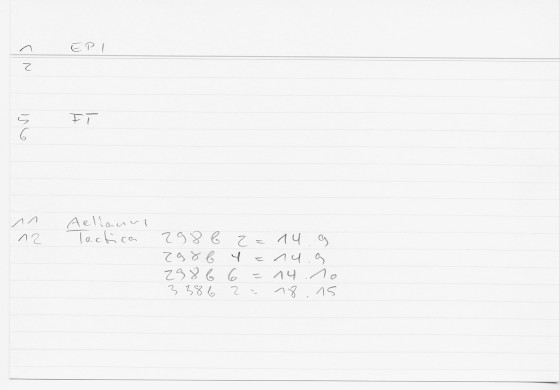 1 EPI
2
5 FT
6
11 Aelianus
12 Tactica 298 6 2 = 14.9
298 6 4 = 14.9
298 6 6 = 14.10
338 6 2 = 18.15